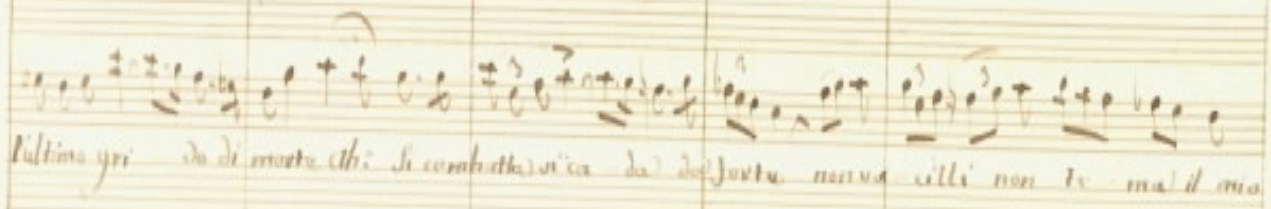 l'ultimo gri do di morte Ahi si combatta si ca da da forte non va cilli non te ma il mio